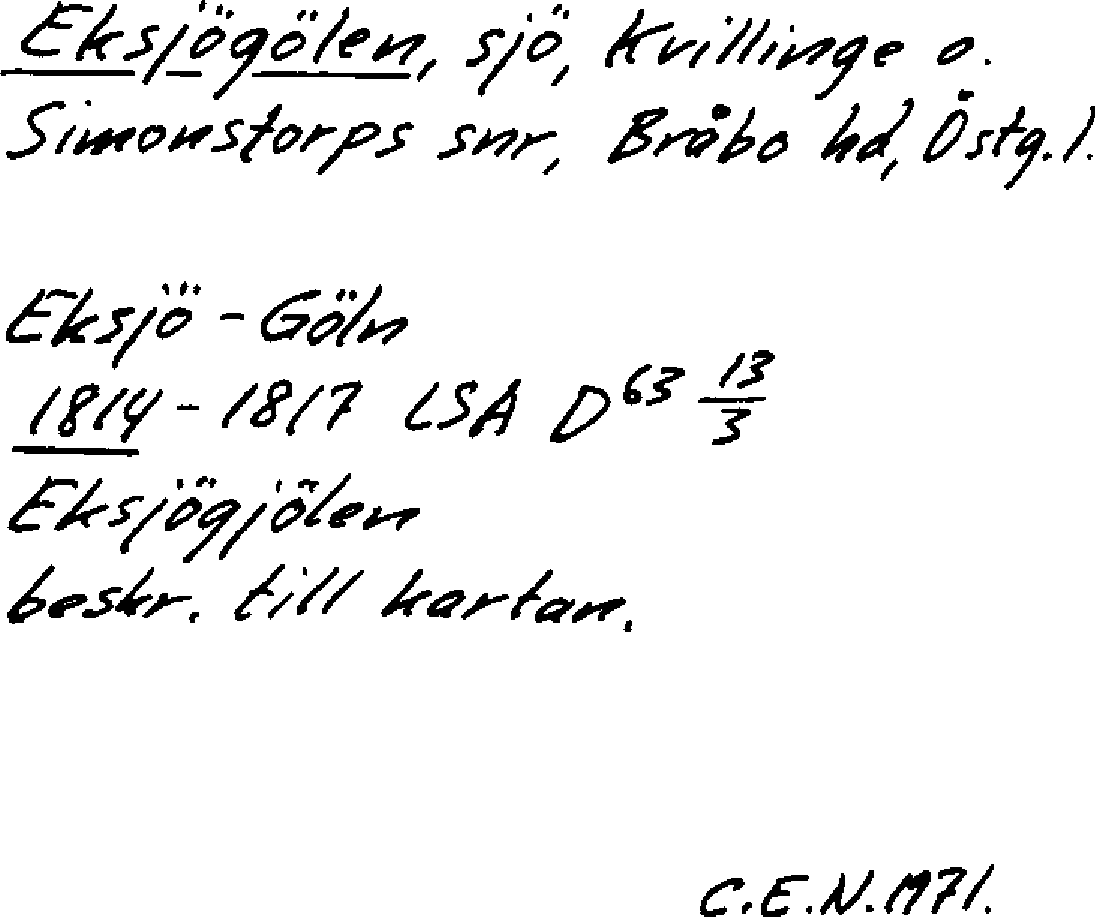 Eksjögölen, sjö, Kvillinge o.
Simonstorps snr, Bråbo hd, Östg.l.
Eksjö-Göln
1814-1817 LSA D 63 13/3
Eksjögjölen
beskr. till kartan.
C.E.N. 1971.